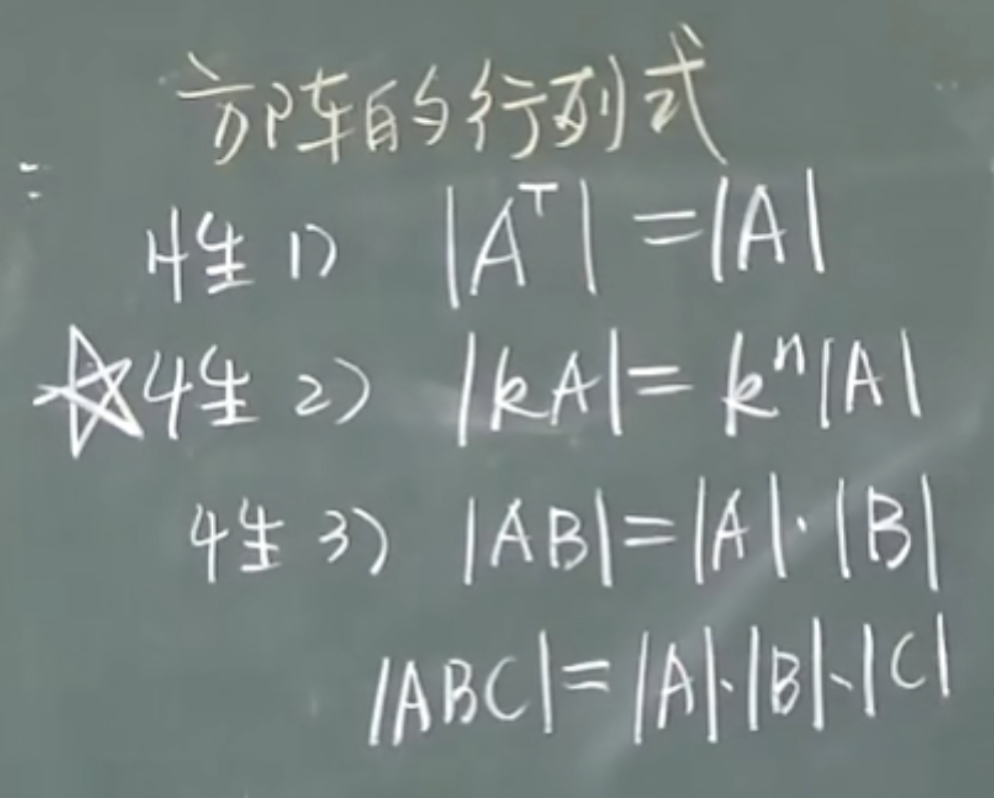 方阵的行列式
性 1) |Aᵀ| = |A|
☆性 2) |kA| = kⁿ|A|
性 3) |AB| = |A|·|B|
|ABC| = |A|·|B|·|C|